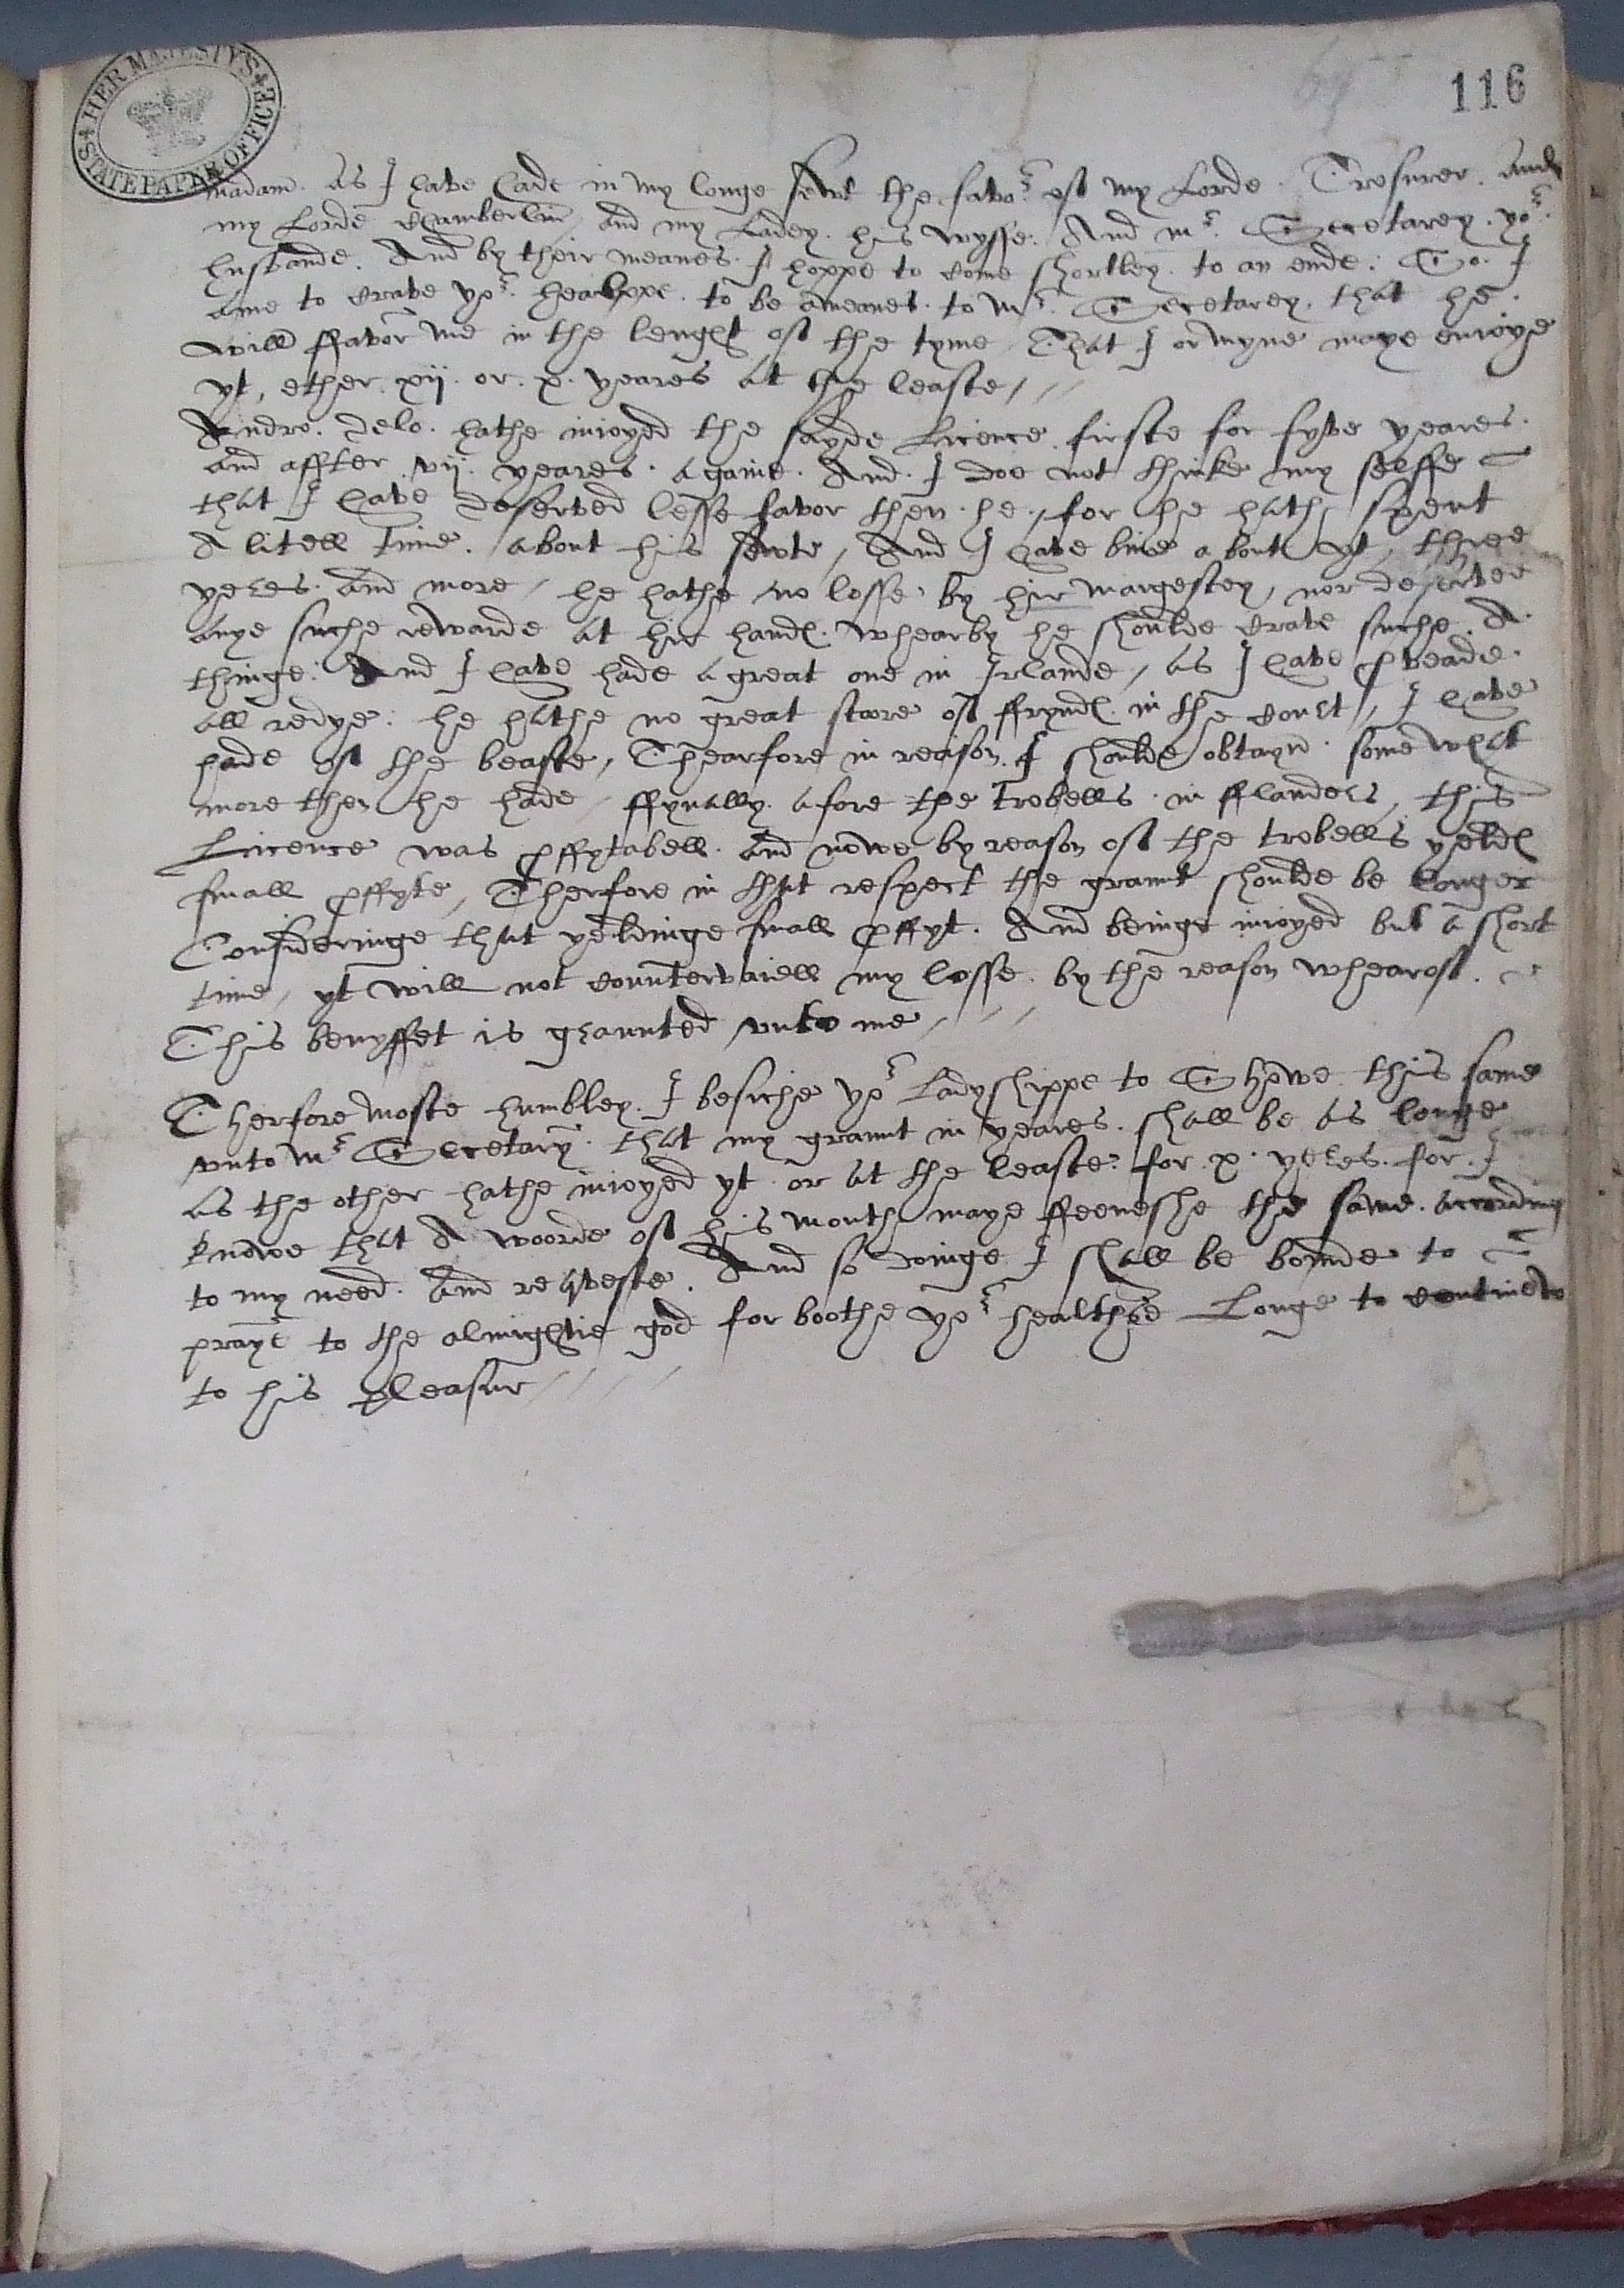 HER MAJESTY'S
STATE PAPER OFFICE
116
Madam. As I have hade in my longe sewt the favor of my Lorde. Tresurer. And
my Lorde Chamberlin, and my Ladey. his wyffe. And mr. Secretarey. yor.
husbande. And by their meanes. I hoppe to come shortley. to an ende: So. I
ame to crave yor. to be a meanes. to mr. Secretarey. that he.
will ffavor me in the lenght of the tyme. That I or myne maye enioye
yt, ether. xij. or. x. yeares at the leaste,//
Andro. delo. hathe inioyed the sayde Licence. firste for fyve yeares.
and affter vij. yeares. againe. And. I doe not thinke my selffe
that I have deserved lesse favor then. he., for he hath spent
A litell time. about his sewte, And I have bine about yt, three
yeres. and more, he hathe no losse by hir maigestey, nor deserved
anye suche rewarde at hir hand. whearby he shoulde crave suche. A.
thinge: And I have hade a great one in Irlande, as I have
all redye: he hathe no great stoore of ffrynd in the court, I have
hade of the beaste, Thearfore in reason. I shoulde obtayn. somewhat
more then he hade, ffynally. afore the trobells in fflanders, this
Licence was pffytabell. and nowe by reason of the trobells yeld
small pffyte, Therfore in that respect the graunt shoulde be longer
Consideringe that yeldinge small pffyt. And beinge inioyed but a short
time, yt will not countervaiell my losse. by the reason whearof.
This benyffet is graunted unto me,//
Therfore moste humbley. I besiche yor Ladyshippe to Showe this same
unto mr Secretary. that my graunt in yeares. shall be as longe
as the other hathe inioyed yt. or at the leaste. for. x. yeres. for. I
knowe that A woorde of his mouth maye the same. accordinge
to my need. And requeste. And so doinge I shall be bounde to
praye to the almightie god for boothe yor healthe Longe to continew
to his pleasur////